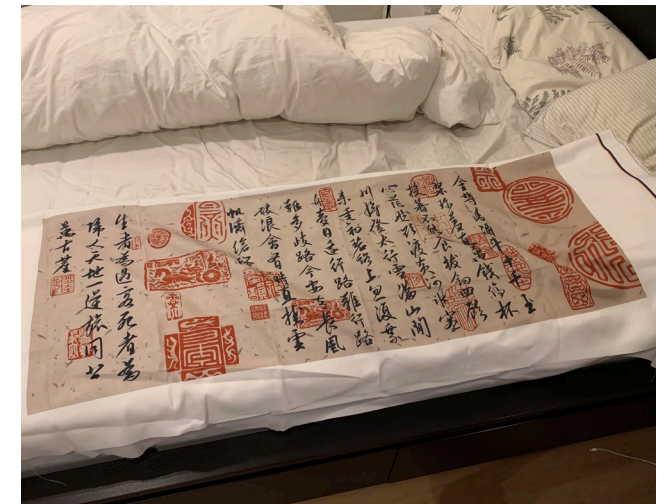 金樽清酒斗十千玉
盤珍羞直萬錢停杯
投箸不能食拔劍四顧
心茫然欲渡黃河冰塞
川將登太行雪滿山閒
來垂釣碧溪上忽復乘
舟夢日邊行路難行路
難多歧路今安在長風
破浪會有時直掛雲
帆濟滄海
生者為過客死者為
歸人天地一逆旅同悲
萬古塵